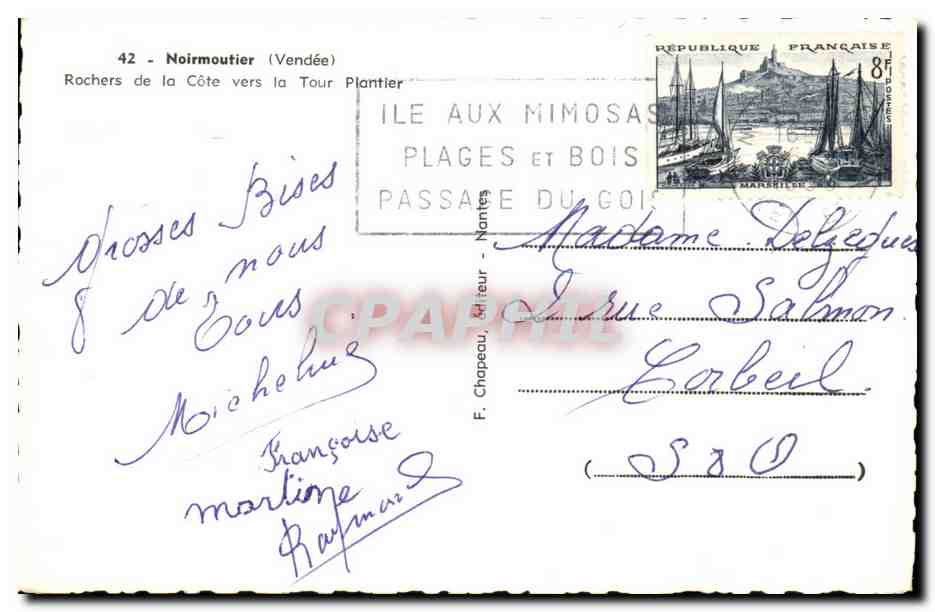 42 - Noirmoutier (Vendée)
Rochers de la Côte vers la Tour Plantier
RÉPUBLIQUE FRANÇAISE
8F
POSTES
MARSEILLE
ILE AUX MIMOSAS
PLAGES ET BOIS
PASSAGE DU GOIS
Grosses Bises
de nous
tous
Micheline
Françoise
martine
Raymond
F. Chapeau, éditeur - Nantes
CPAPHIL
Madame
rue Salmon
Corbeil.
(S & O)